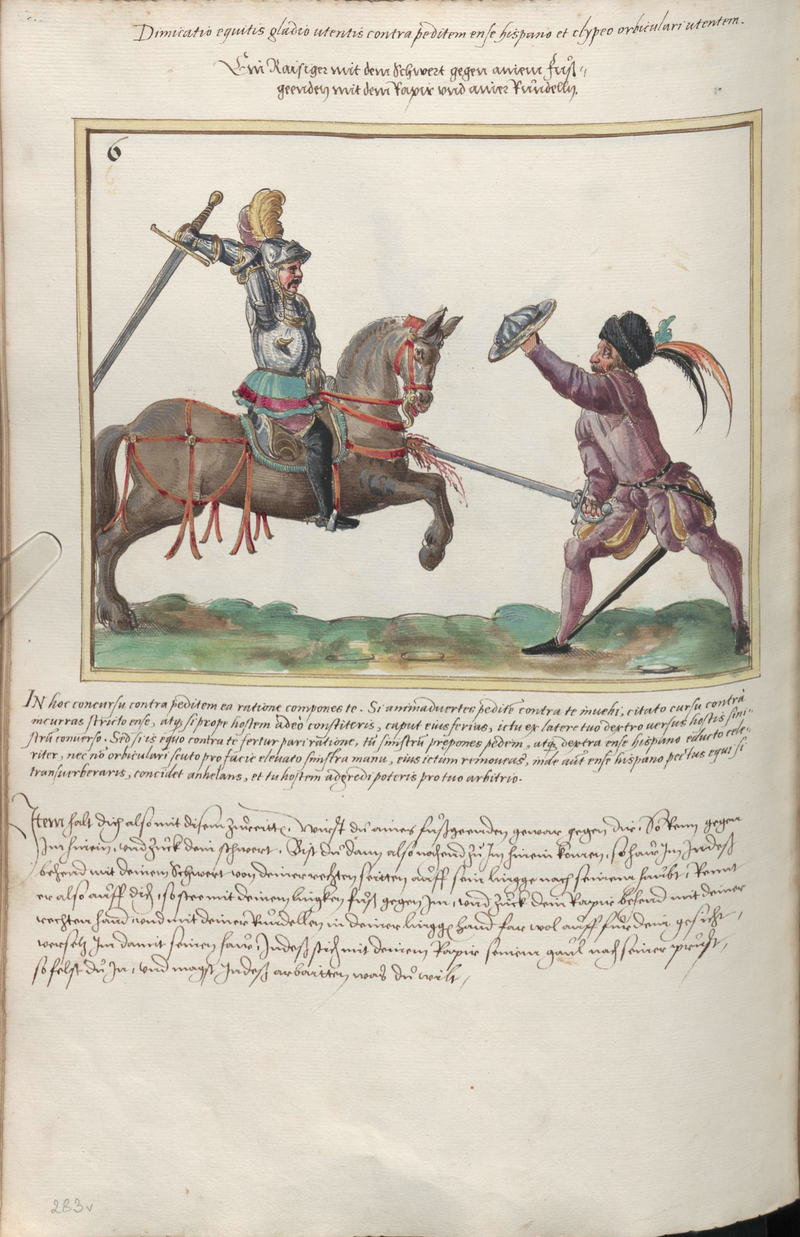 Dimicatio equitis gladio utentis contra peditem ense hispano et clypeo orbiculari utentem.
Ein Raisiger mit dem Schwert gegen ainem fuß=
geenden mit dem Rapir vnd ainer Rundelln.
6
IN hoc concursu contra peditem ea ratione compones te. Si animaduertes peditē contra te inuehi, citato cursu contra
incurras stricto ense, atq₃ si prope hostem adeò constiteris, caput eius ferias, ictu ex latere tuo dextro versus hostis sini=
strū conuerso. Sed si is equo contra te fertur pari ratione, tū sinistrū prepones pedem, atq₃ dextra ense hispano educto cele=
riter, nec nō orbiculari scuto pro facie eleuato sinistra manu, eius ictum remoueas, inde aūt ense hispano pectus equi si
transuerberaris, concidet anhelans, et tu hostem adgredi poteris pro tuo arbitrio.
Item halt dich also mit disem zureitt, Wirst du aines fußgeenden gewar gegen dir, So Renn gegen
Im hinein, vnd Zuck dein schwert, Bist du dann also nahend zu Im hinein komen, so haw Im Indeß
behend mit deinem Schwert von deiner rechten seitten auff sein lingge nach seinem haubt, Rennt
er also auff dich, so stee mit deinem lingken fuß gegen Im, vnd Zuck dein Rapir behend mit deiner
rechten hand vnd mit deiner Rundellen in deiner lingg hand far wol auff für dein gesicht,
versetz Im damit seinen haw, Indeß stich mit deinem Rapir seinem gaul nach seiner prust,
so felst du In, vnd magst Indeß arbaitten was du wilt,
283v